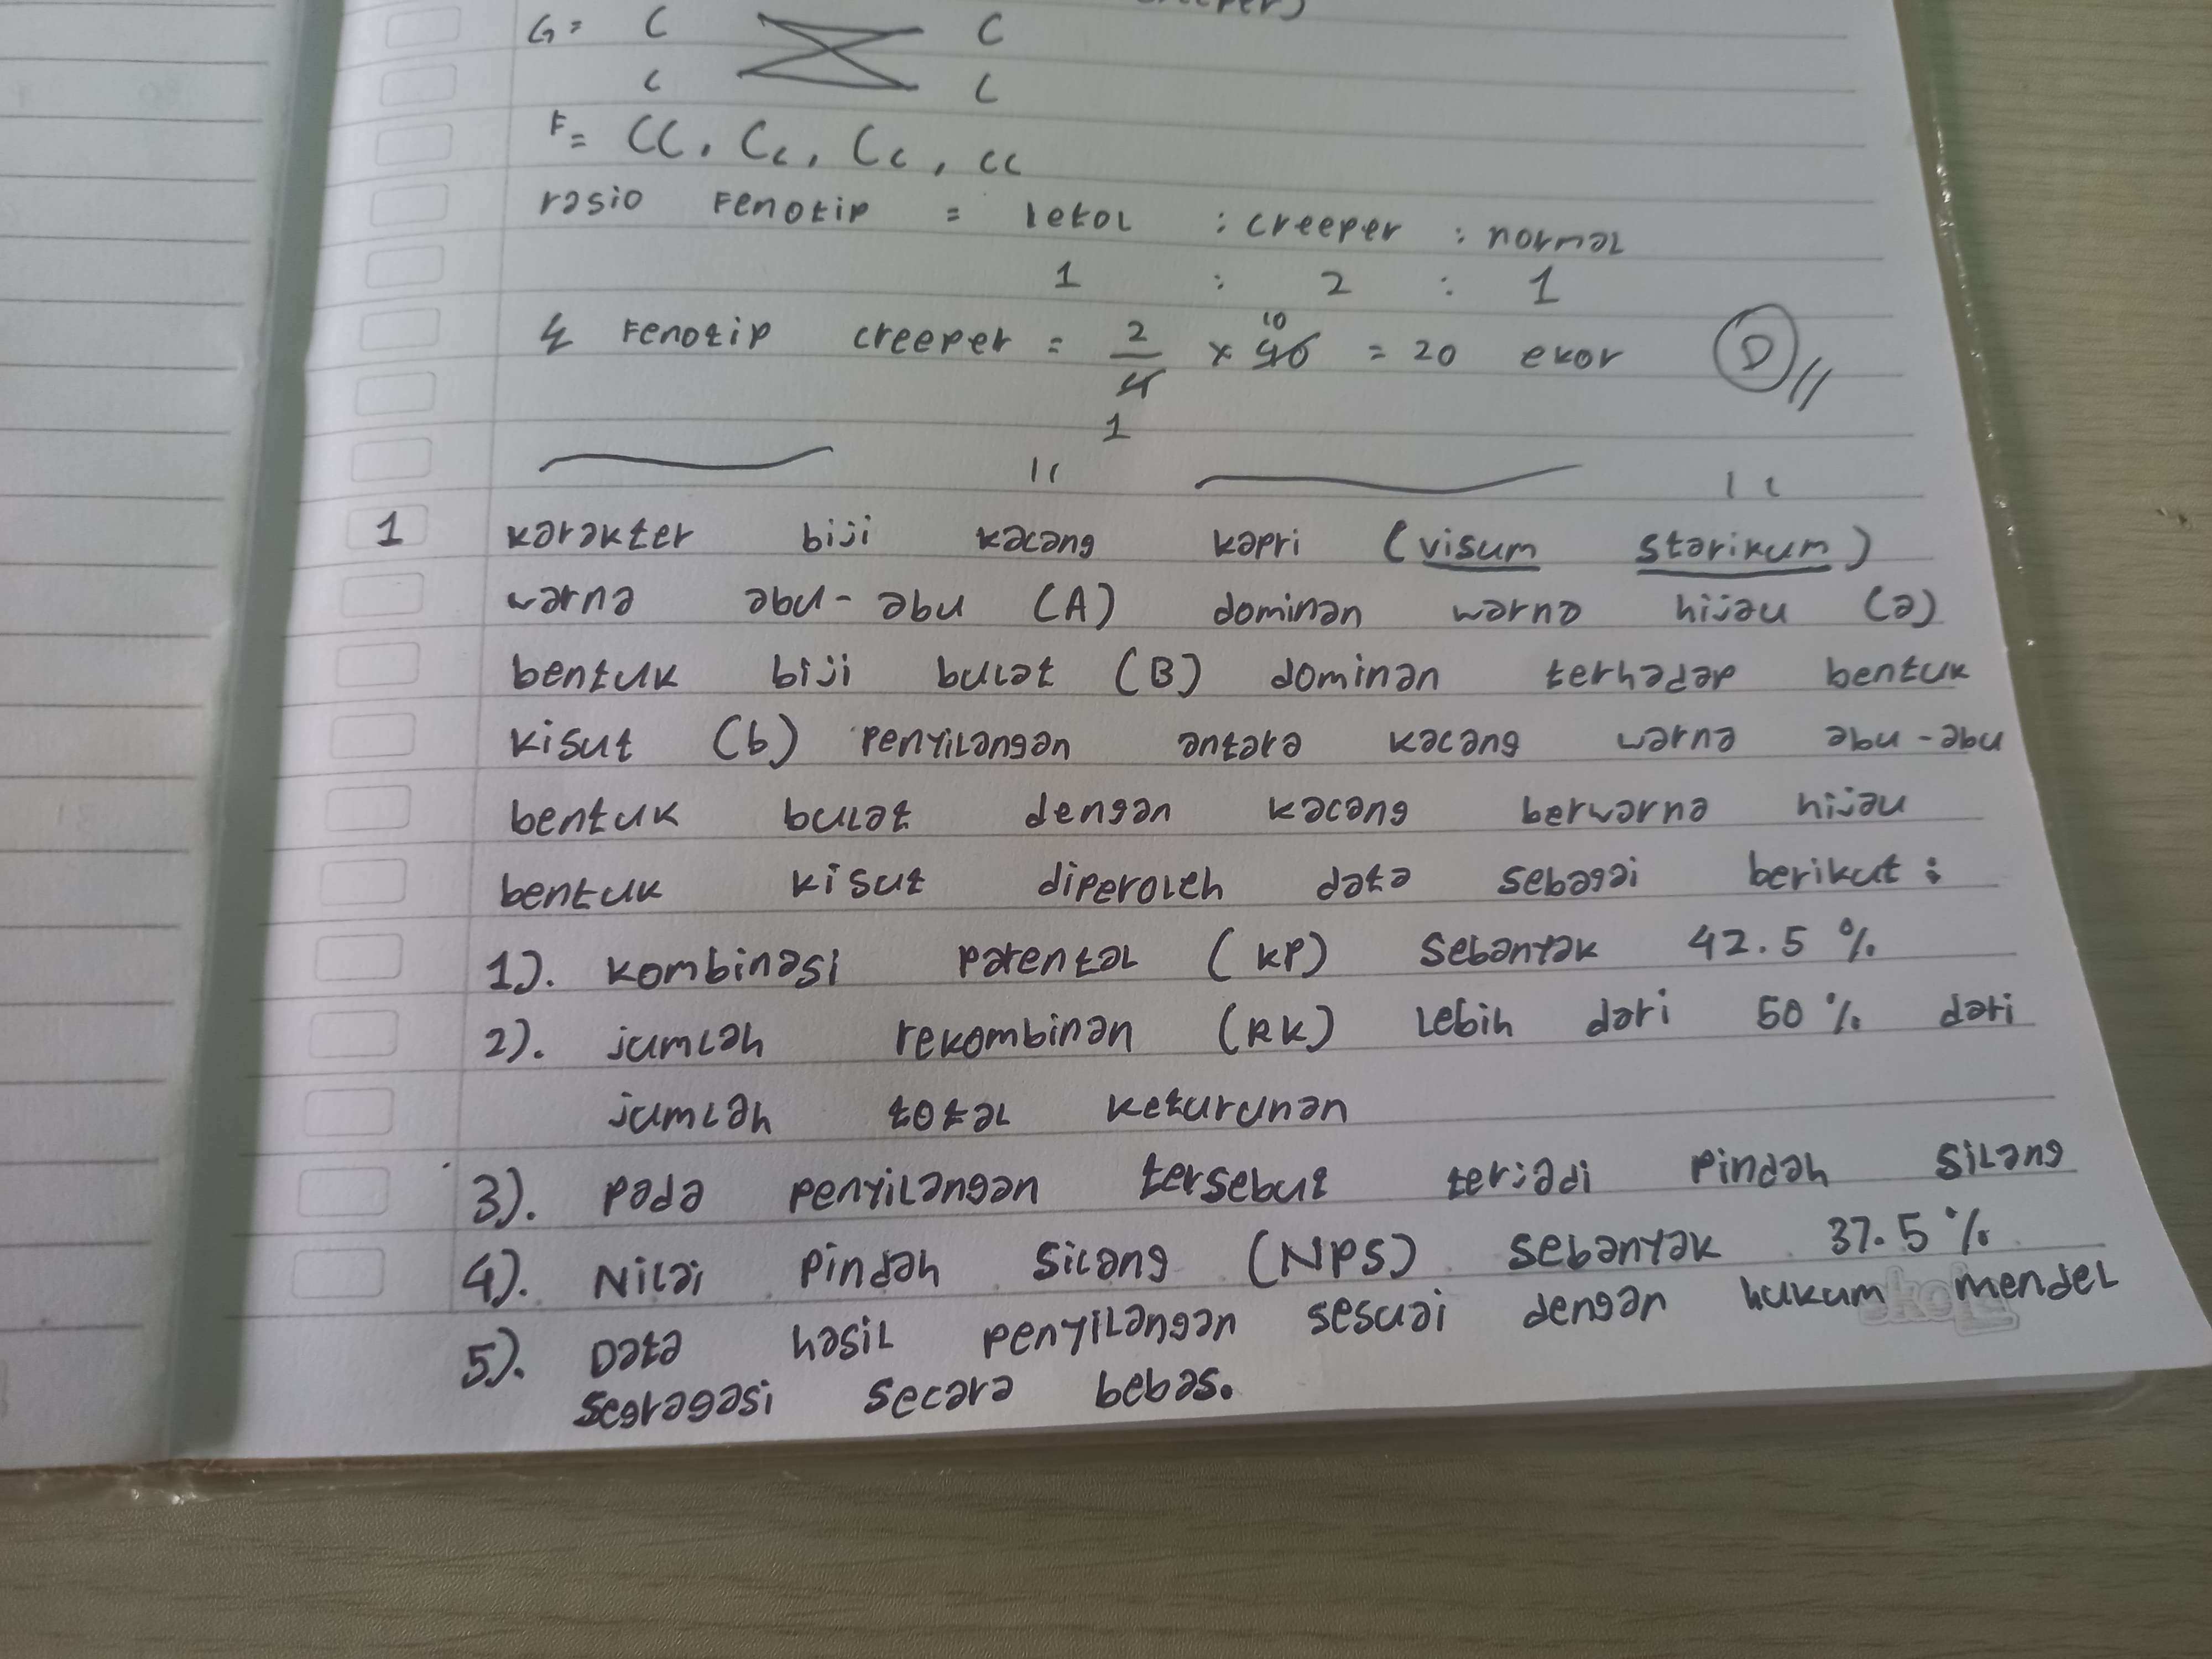 G = C C
c c
F = CC, Cc, Cc, cc
rasio Fenotip = letal : creeper : normal
1 : 2 : 1
Fenotip creeper = 2/4 x 40 = 20 ekor D //
10
1
1 karakter biji kacang kapri (visum starikum)
warna abu-abu (A) dominan warna hijau (a)
bentuk biji bulat (B) dominan terhadap bentuk
kisut (b) penyilangan antara kacang warna abu-abu
bentuk bulat dengan kacang berwarna hijau
bentuk kisut diperoleh data sebagai berikut :
1). kombinasi parental (KP) sebanyak 42.5 %
2). jumlah rekombinan (RK) lebih dari 50 % dari
jumlah total keturunan
3). pada penyilangan tersebut terjadi pindah silang
4). Nilai pindah silang (NPS) sebanyak 37.5 %
5). Data hasil penyilangan sesuai dengan hukum mendel
segragasi secara bebas.